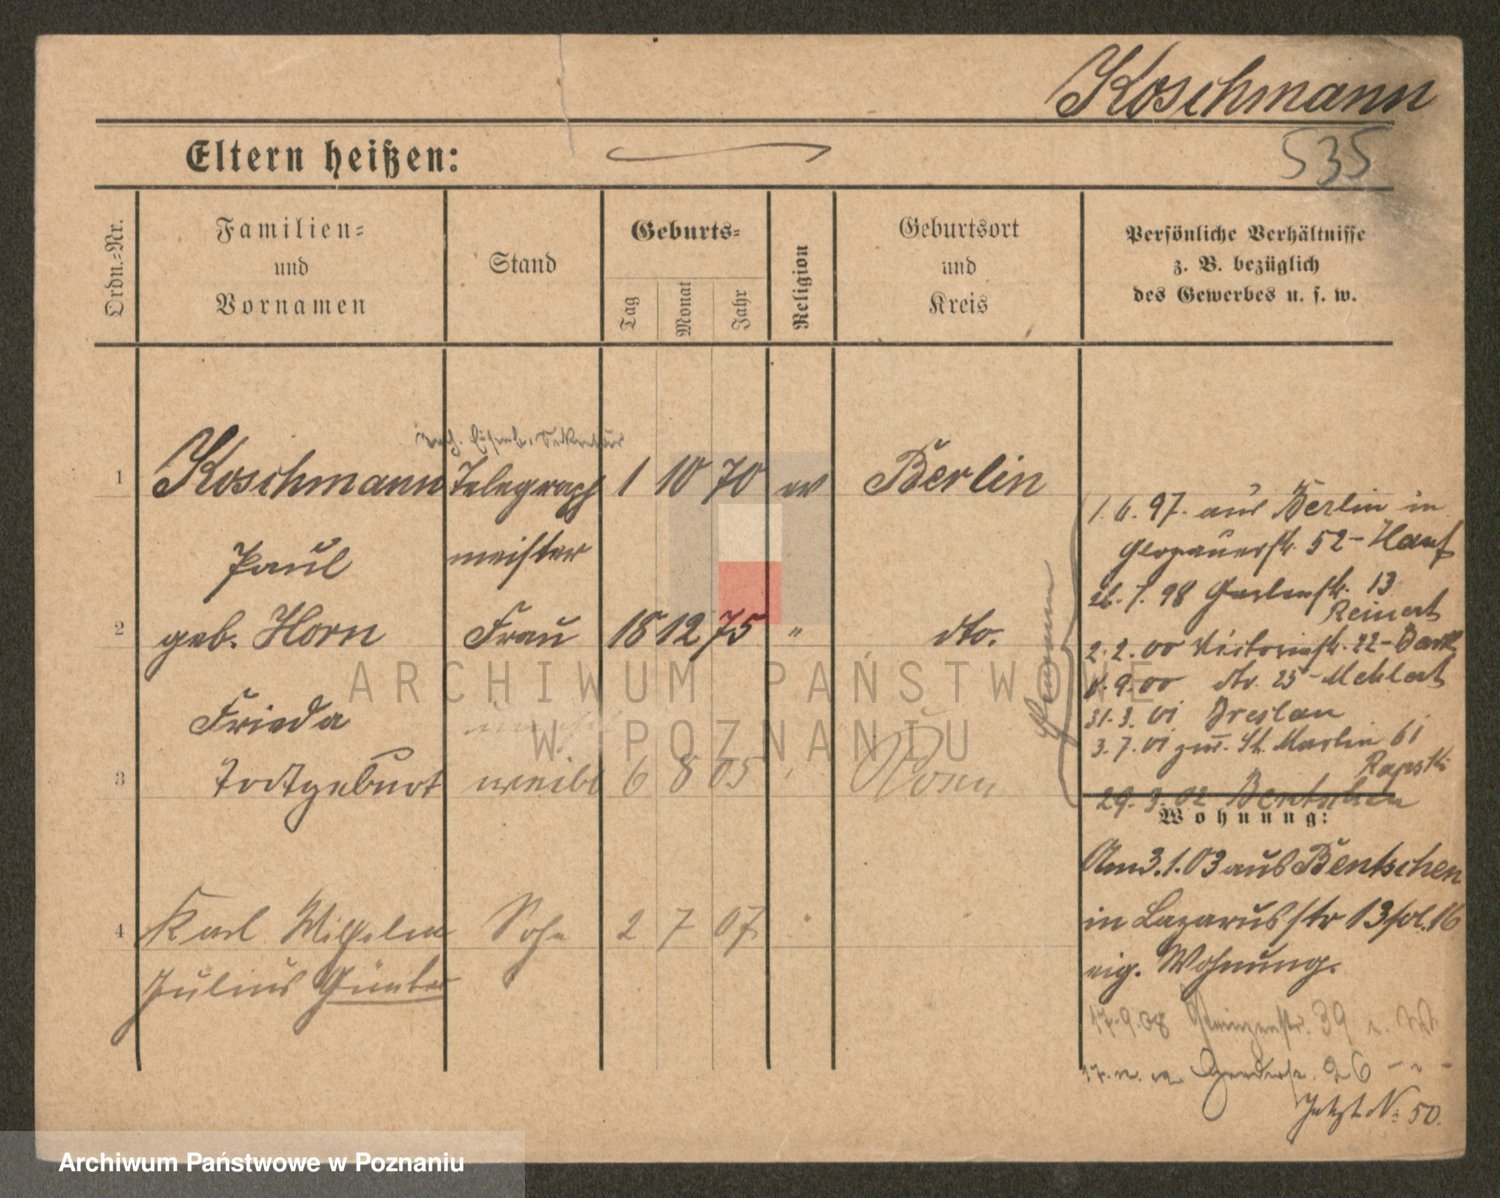 Koschmann
535
Eltern heißen:
Ordn.-Nr.
Familien-
und
Vornamen
Stand
Geburts-
Tag
Monat
Jahr
Religion
Geburtsort
und
Kreis
Persönliche Verhältnisse
z. B. bezüglich
des Gewerbes u. s. w.
Eisenb. Sekretär
1 Koschmann Telegraph 1 10 70 ev Berlin
Paul meister
2 geb. Horn Frau 18 12 75 " dto.
Frieda
3 Todtgeburt weibl 6 8 05 Posen
4 Karl Wilhelm Sohn 2 7 07
Julius Günter
1.6.97. aus Berlin in
Glogauerstr. 52 - Hauf
26.7.98 Gartenstr. 13
Reinert
2.2.00 Victoriastr. 22 -
9.00 dto. 25 - Mehlert
31.3.01 Breslau
3.7.01 zur. St. Martin 61
29.3.02 Bentschen
Wohnung:
Am 3.1.03 aus Bentschen
in Lazarusstr 13 pol. 16
eig. Wohnung.
17.9.08 39
26 - " -
Jetzt N: 50.
ARCHIWUM PAŃSTWOWE
W POZNANIU
Archiwum Państwowe w Poznaniu